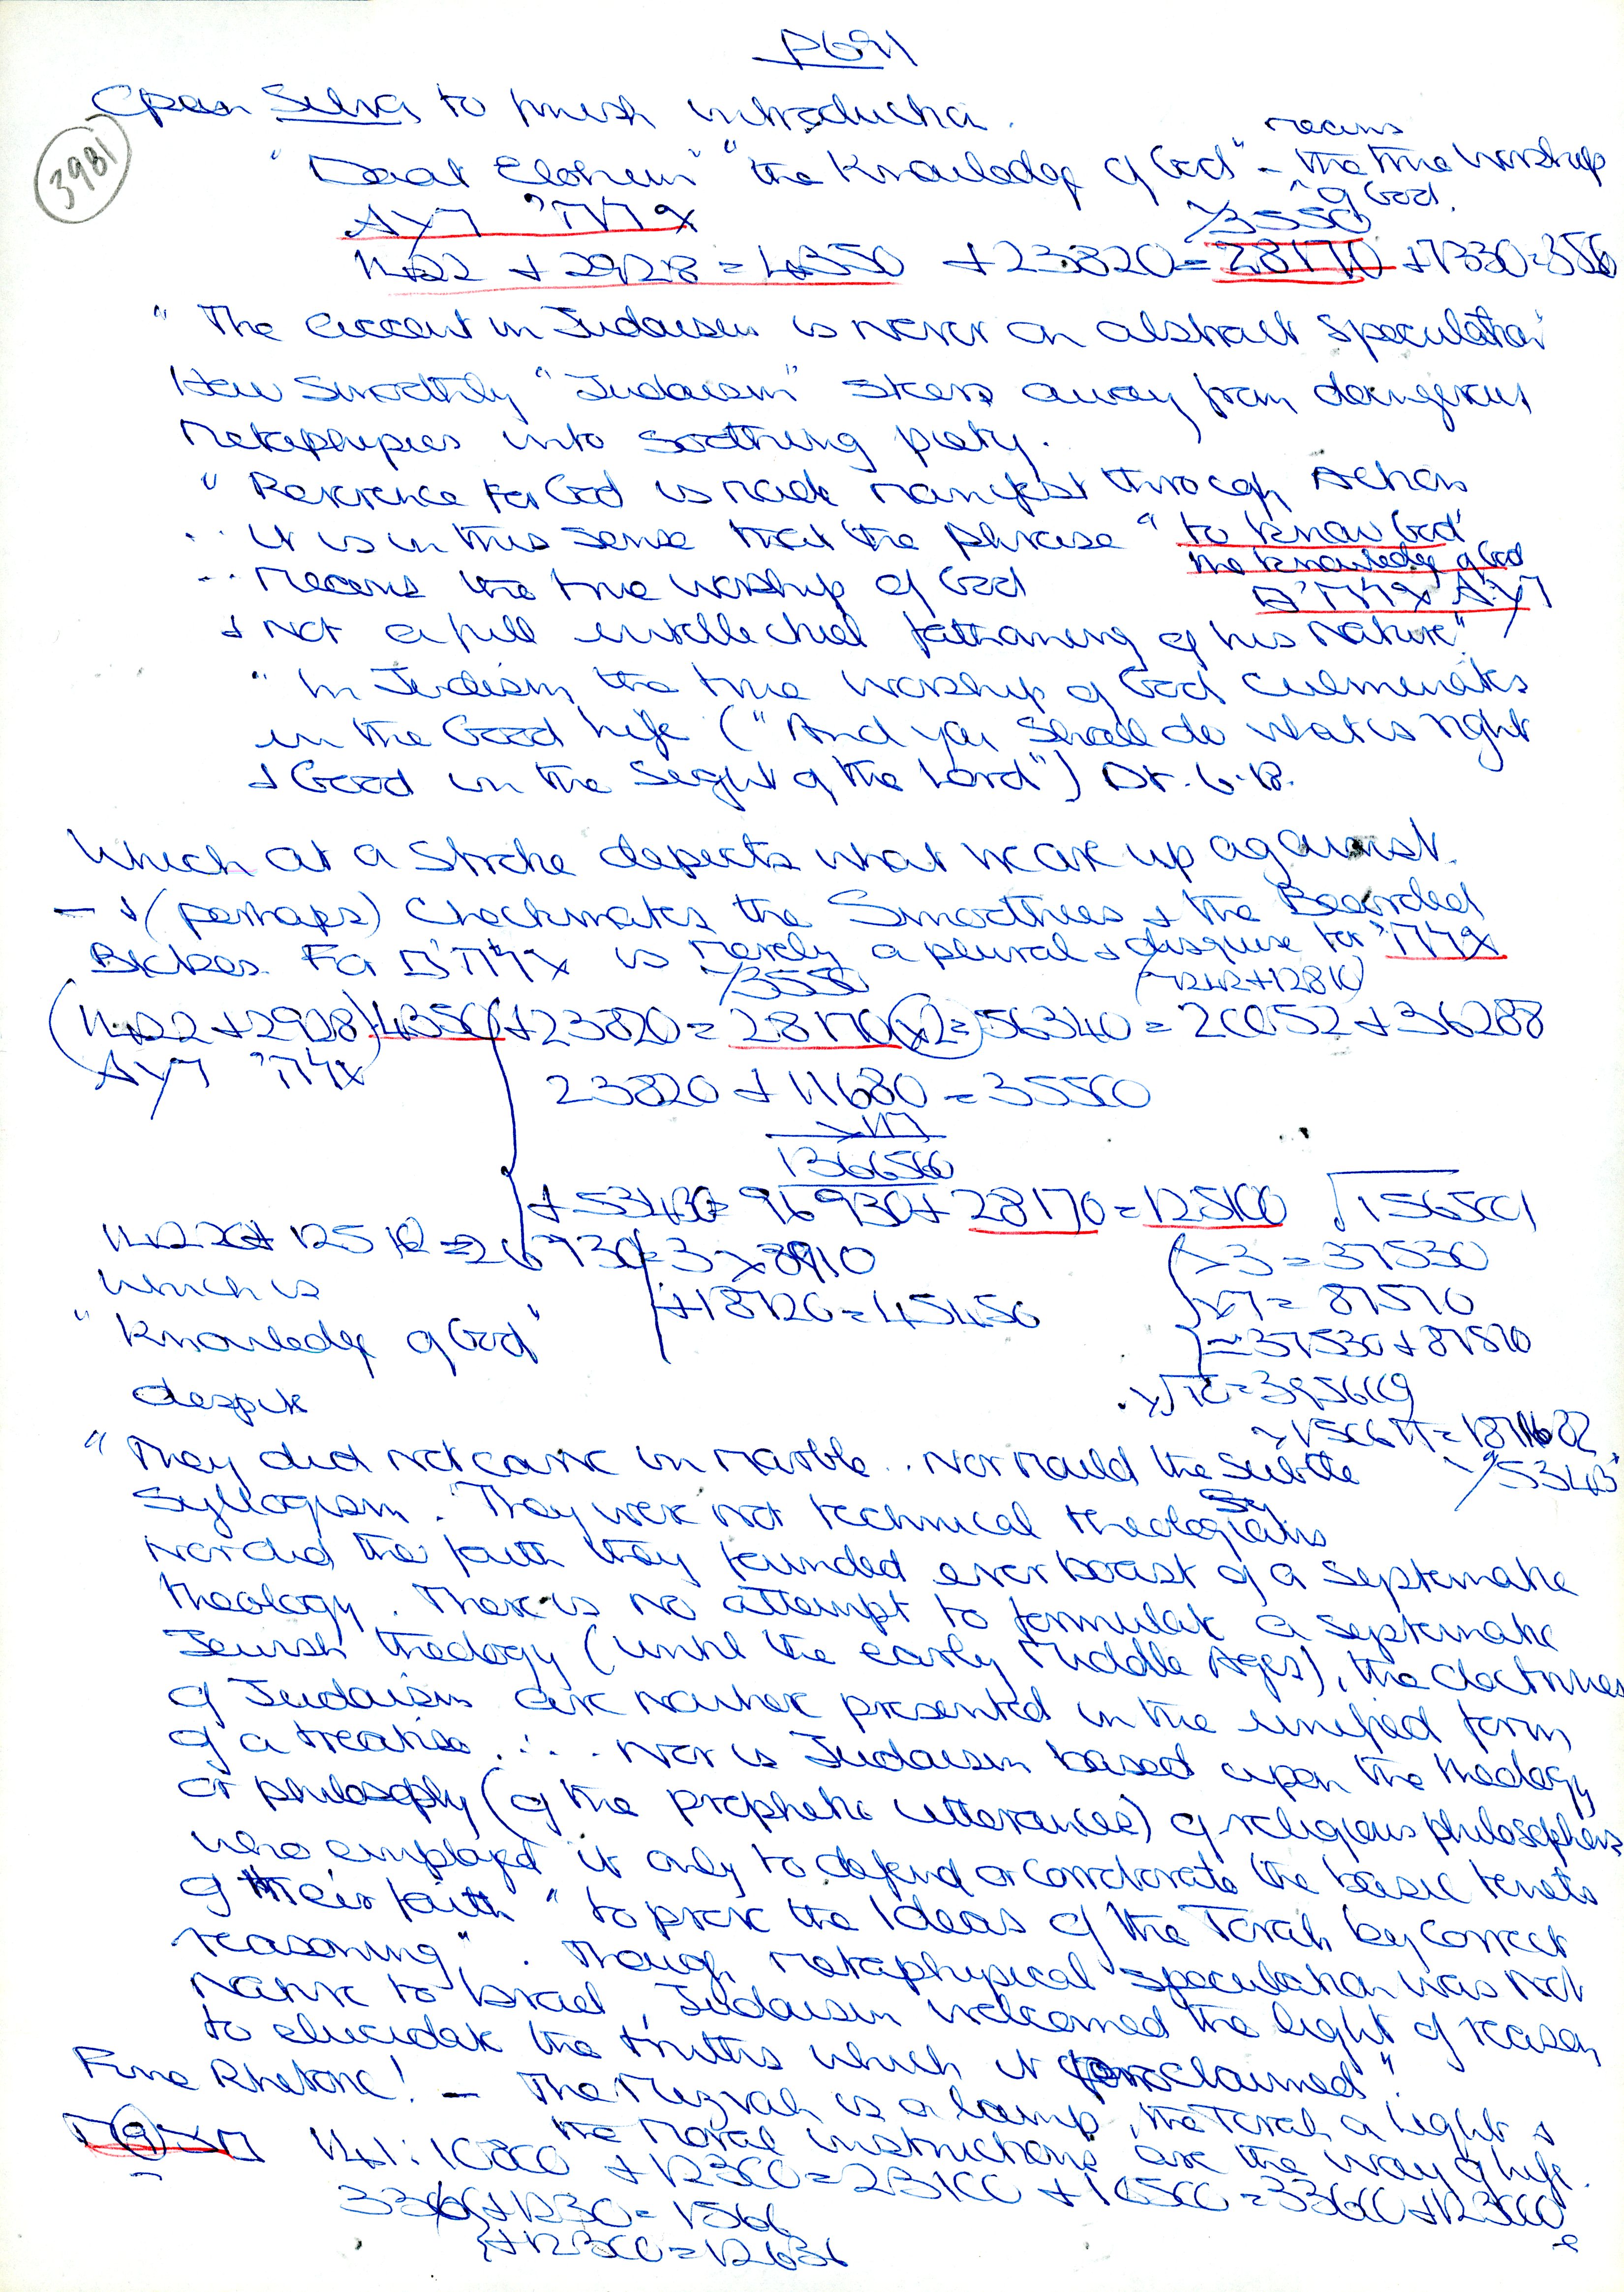 P691
Open Silva to finish introduction.
3981
means
"Daat Elohim" "the Knowledge of God" - the true Worship
of God.
דעת אלהי
1422 + 2928 = 4350 + 23820 = 28170 + 7330 =
"The accent in Judaism is never on abstract speculation"
How Smoothly "Judaism" steers away from dangerous
Metaphysics into soothing piety.
"Reverence for God is made manifest through Actions
.. it is in this sense that the phrase "to know God"
the knowledge of God
.. Means the true worship of God
דעת אלהים
& Not a full intellectual fathoming of his Nature".
"In Judaism, the true worship of God culminates
in the Good life ("And you shall do what is right
& Good in the Sight of the Lord") Dt. 6.18.
Which at a Stroke depicts what we are up against.
- & (perhaps) Checkmates the Smoothies & the Bearded
Blokes. For אלהים is merely a plural & disguise for אלהי
(1422 + 2928) 4350 + 23820 = 28170 (x2=) 56340 = 20052 + 36288
דעת אלהי
23820 + 11680 = 35500
+ 53430 = 96930 + 28170 = 125100
= 26730 = 3 x 8910
which is
+ 18720 = 45450
x3 = 37530
x7 = 87570
= 37530 + 87570
"Knowledge of God"
despite
"They did not carve in marble .. Nor mould the subtle
Syllogism. They were not technical theologians
Nor did the faith they founded ever boast of a systematic
theology. There is no attempt to formulate a systematic
Jewish theology (until the early Middle Ages), the doctrines
of Judaism are neither presented in the unified form
of a treatise .... Nor is Judaism based upon the theology
or philosophy (of the prophetic utterances) of religious philosophers
who employed it only to defend or corroborate the basic tenets
of their faith "to prove the Ideas of the Torah by correct
reasoning". Though metaphysical speculation was not
Native to Israel, Judaism welcomed the light of reason
to elucidate the truths which it proclaimed".
Fine Rhetoric! - The Mizvah is a lamp, the Torah a light &
the Moral instructions are the way of life.
1441: 10800 + 12300 = 23100 + 10500 = 33600 + 12300
+ 12300 = 12636